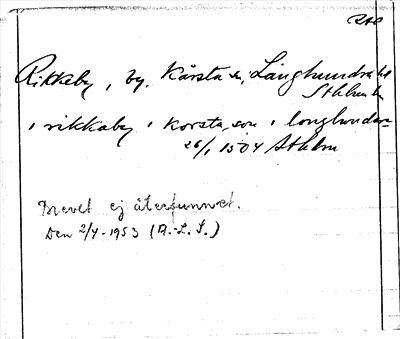 RAP
Rikkeby, by, Kårsta sn, Långhundra hd
Sthlms l
i rikkaby i korsta son i longhundare
26/1 1504 Sthlm
Brevet ej återfunnet.
Den 2/4-1953 (A.-L. S.)